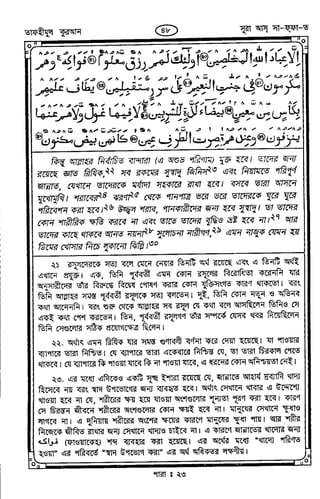 তাফহীমুল কুরআন
৪৮
সূরা আস্ সা-ফ্‌ফা-ত
اِلَّا عِبَادَ اللّٰهِ الْمُخْلَصِيْنَ اُولٰٓئِكَ لَهُمْ رِزْقٌ مَّعْلُوْمٌ فَوَاكِهُ وَهُمْ
مُّكْرَمُوْنَ فِيْ جَنّٰتِ النَّعِيْمِ عَلٰى سُرُرٍ مُّتَقٰبِلِيْنَ يُطَافُ عَلَيْهِمْ
بِكَاْسٍ مِّنْ مَّعِيْنٍ بَيْضَآءَ لَذَّةٍ لِّلشّٰرِبِيْنَ لَا فِيْهَا غَوْلٌ وَّلَا هُمْ عَنْهَا
يُنْزَفُوْنَ وَعِنْدَهُمْ قٰصِرٰتُ الطَّرْفِ عِيْنٌ كَاَنَّهُنَّ بَيْضٌ مَّكْنُوْنٌ
কিন্তু আল্লাহর নির্বাচিত বান্দারা (এ অশুভ পরিণাম) মুক্ত হবে। তাদের জন্য
রয়েছে জ্ঞাত রিযিক,২২ সব রকমের সুস্বাদু জিনিস২৩ এবং নিয়ামতে পরিপূর্ণ
জান্নাত, যেখানে তাদেরকে মর্যাদা সহকারে রাখা হবে। বসবে তারা আসনে
মুখোমুখি। শরাবের২৪ ঝরণা২৫ থেকে পানপাত্র ভরে ভরে তাদেরকে ঘুরে ঘুরে
পরিবেশন করা হবে।২৬ উজ্জ্বল শরাব, পানকারীদের জন্য হবে সুস্বাদু। তা তাদের
কোন শারীরিক ক্ষতি করবে না এবং তাতে তাদের বুদ্ধিও ভ্রষ্ট হবে না।২৭ আর
তাদের কাছে থাকবে আনত নয়না২৮ সুলোচনা নারীগণ,২৯ এমন নাজুক যেমন হয়
ডিমের খোসার নিচে লুকানো ঝিল্লি।৩০
২১. রসূলদেরকে সত্য বলে মেনে নেয়ার তিনটি অর্থ রয়েছে এবং এ তিনটি অর্থই
এখানে প্রযুক্ত। এক, তিনি পূর্ববর্তী এমন কোন রসূলের বিরোধিতা করেননি যার
অনুসারীদের তাঁর বিরুদ্ধে বিদ্বেষ পোষণ করার কোন যুক্তিসংগত কারণ থাকতো। বরং
তিনি আল্লাহর সমস্ত পূর্ববর্তী রসূলকে সত্য বলতেন। দুই, তিনি কোন নতুন ও অভিনব
কথা আনেননি। বরং শুরু থেকে আল্লাহর সব রসূল যে কথা বলে আসছিলেন তিনিও সে
একই কথা পেশ করতেন। তিন, পূর্ববর্তী রসূলগণ তাঁর সম্পর্কে যেসব খবর দিয়েছিলেন
তিনি সেগুলোর সঠিক প্রয়োগক্ষেত্র ছিলেন।
২২. অর্থাৎ এমন রিযিক যার সমস্ত গুণাবলী বর্ণনা করে দেয়া হয়েছে। যা পাওয়ার
ব্যাপারে তারা নিশ্চিত। যে ব্যাপারে তারা একেবারে নিশ্চিন্ত যে, তা তারা চিরকাল পেতে
থাকবে। যে ব্যাপারে কি পাওয়া যাবে কি না পাওয়া যাবে, এ ধরনের কোন অনিশ্চয়তা নেই।
২৩. এর মধ্যে এদিকেও একটি সূক্ষ্ম ইশারা রয়েছে যে, জান্নাতে আহার্য দ্রব্যাদি খাদ্য
হিসেবে নয় বরং স্বাদ উপভোগের জন্য ব্যবহৃত হবে। অর্থাৎ সেখানে খাবার এ উদ্দেশ্যে
খাওয়া হবে না যে, শরীরের ক্ষয় হয়ে যাওয়া অংশগুলোর শূন্যতা পূরণ করা হবে। কারণ
সে চিরন্তন জীবনে শরীরের অংশগুলোর কোন ক্ষয়ই হবে না। মানুষের সেখানে ক্ষুধাও
লাগবে না। এ দুনিয়ায় শরীরের অংশের ক্ষয়ের কারণে মানুষের ক্ষুধা পায়। আর শরীর
নিজেকে জীবিত রাখার জন্য সেখানে খাদ্যও চাইবে না। এ কারণে জান্নাতের খাদ্যের জন্য
فواكه (ফাওয়াকেহ) শব্দ ব্যবহার করা হয়েছে। এর অর্থের মধ্যে "খাদ্যে পরিণত
হওয়া" এর পরিবর্তে "স্বাদ উপভোগ করা" এর অর্থ অধিকতর লক্ষণীয়।
পারা : ২৩